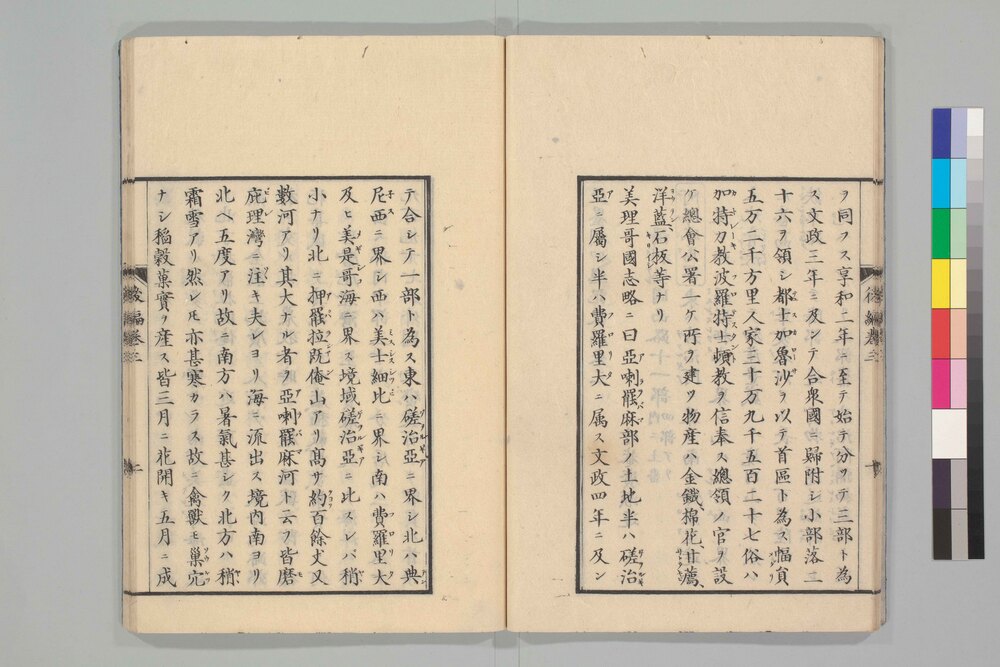 ヲ同フス享和二年ニ至テ始テ分ヲテ三部ト為
ス文政三年ニ及ンテ合衆國ニ歸附シ小部落二
十六ヲ領シ都士加魯沙ヲ以テ首區ト為ス幅員
五万二千方里人家三十万九千五百二十七俗ハ
加特力教波羅特士頓教ヲ信奉ス總領ノ官ヲ設
ケ總會公署一ケ所ヲ建ツ物産ハ金鐵、棉花、甘蔗、
洋藍、石板等ナリ
美理哥國志略ニ曰亞喇罷麻部ノ土地半ハ磋治
亞ニ屬シ半ハ費羅里大ニ属ス文政四年ニ及ン
後編巻三
テ合シテ一部ト為ス東ハ磋治亞ニ界シ北ハ典
尼西ニ界シ西ハ美士細比ニ界シ南ハ費羅里大
及ヒ美是哥海ニ界ス境域磋治亞ニ比スレバ稍
小ナリ北ニ押罷拉既俺山アリ髙サ約百餘丈又
數河アリ其大ナル者ヲ亞喇罷麻河ト云フ皆磨
庇理灣ニ注キ夫レヨリ海ニ流出ス境内南ヨリ
北ヘ五度アリ故ニ南方ハ暑氣甚シク北方ハ稍
霜雪アリ然レモ亦甚寒カラス故ニ禽獸モ巢穴
ナシ稻穀菓實ヲ産ス皆三月ニ花開キ五月ニ成
後編巻三
二